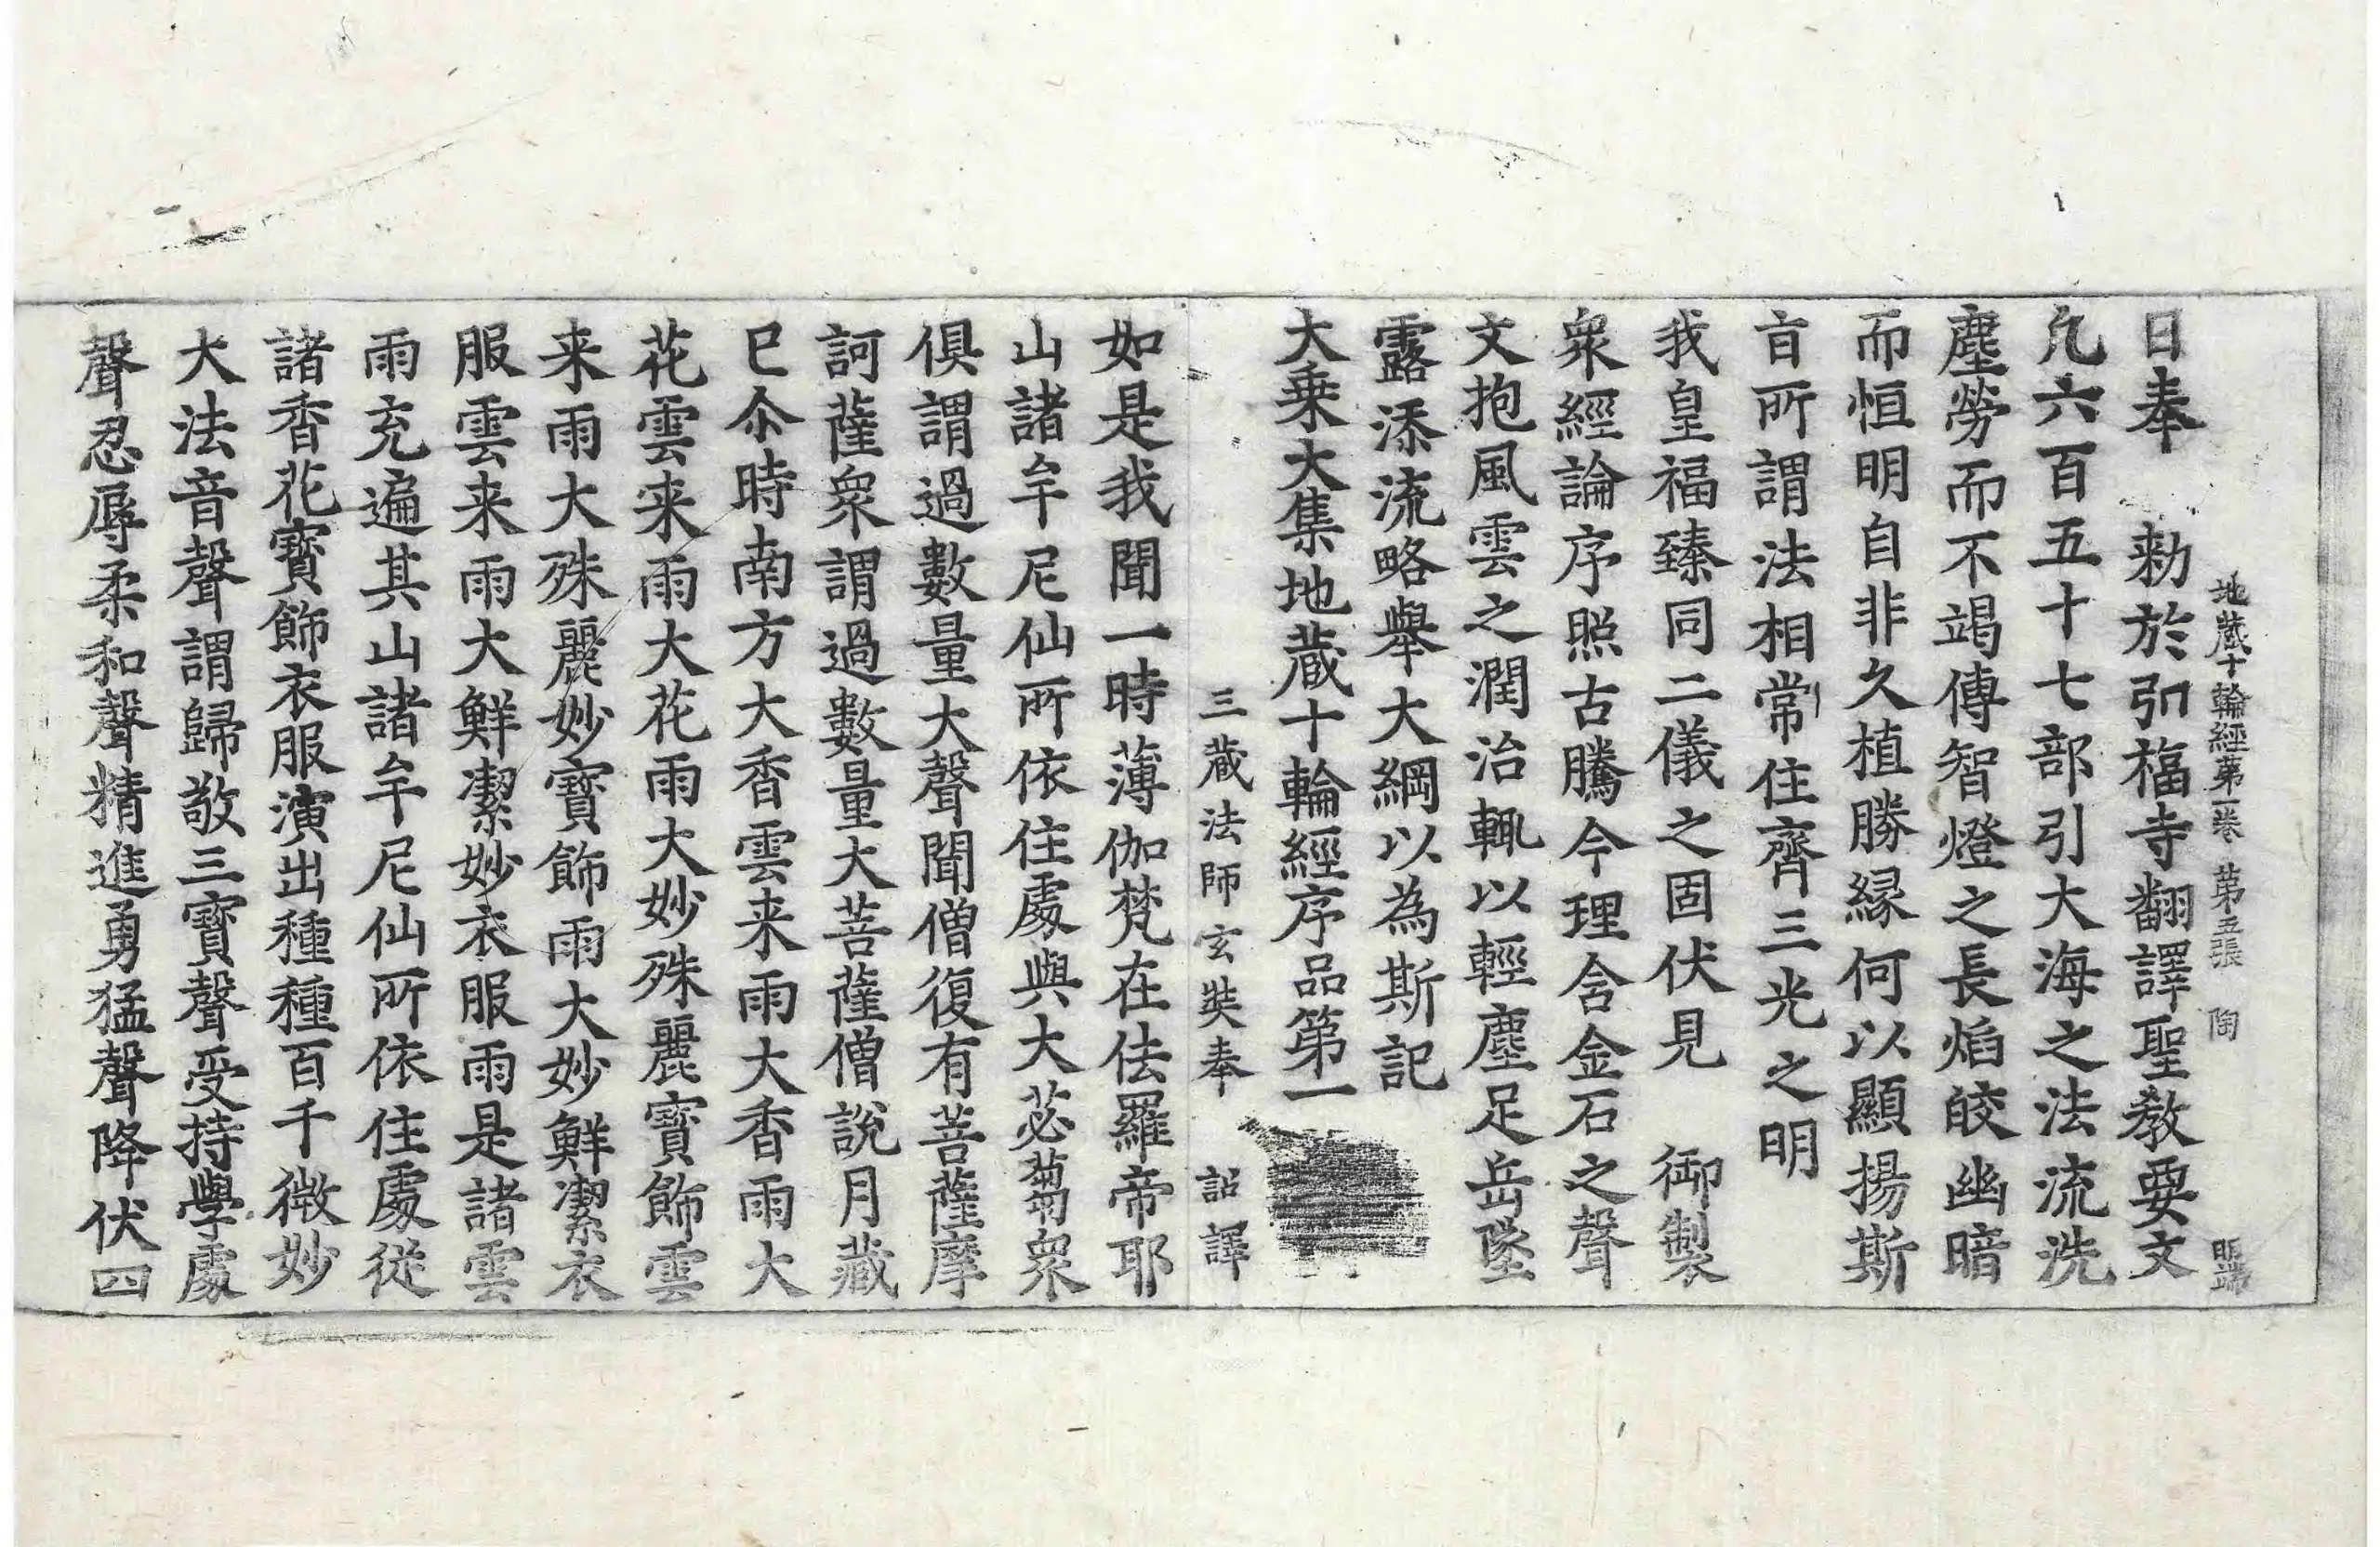 地蔵十輪經苐一卷 苐五張 陶
日奉 勅於弘福寺翻譯聖教要文
凢六百五十七部引大海之法流洗
塵勞而不竭傳智燈之長焰皎幽暗
而恒明自非久植勝縁何以顯揚斯
㫖所謂法相常住齊三光之明
我皇福臻同二儀之固伏見 御製
衆經論序照古騰今理含金石之聲
文抱風雲之潤治輒以輕塵足岳墜
露添流略舉大綱以為斯記
大乗大集地蔵十輪經序品第一
三蔵法師玄奘奉 詔譯
如是我聞一時薄伽梵在佉羅帝耶
山諸牟尼仙所依住處與大苾蒭衆
俱謂過數量大聲聞僧復有菩薩摩
訶薩衆謂過數量大菩薩僧說月藏
已尒時南方大香雲来雨大香雨大
花雲来雨大花雨大妙殊麗寶飾雲
来雨大殊麗妙寶飾雨大妙鮮潔衣
服雲来雨大鮮潔妙衣服雨是諸雲
雨充遍其山諸牟尼仙所依住處從
諸香花寶飾衣服演出種種百千微妙
大法音聲謂歸敬三寶聲受持學處
聲忍辱柔和聲精進勇猛聲降伏四